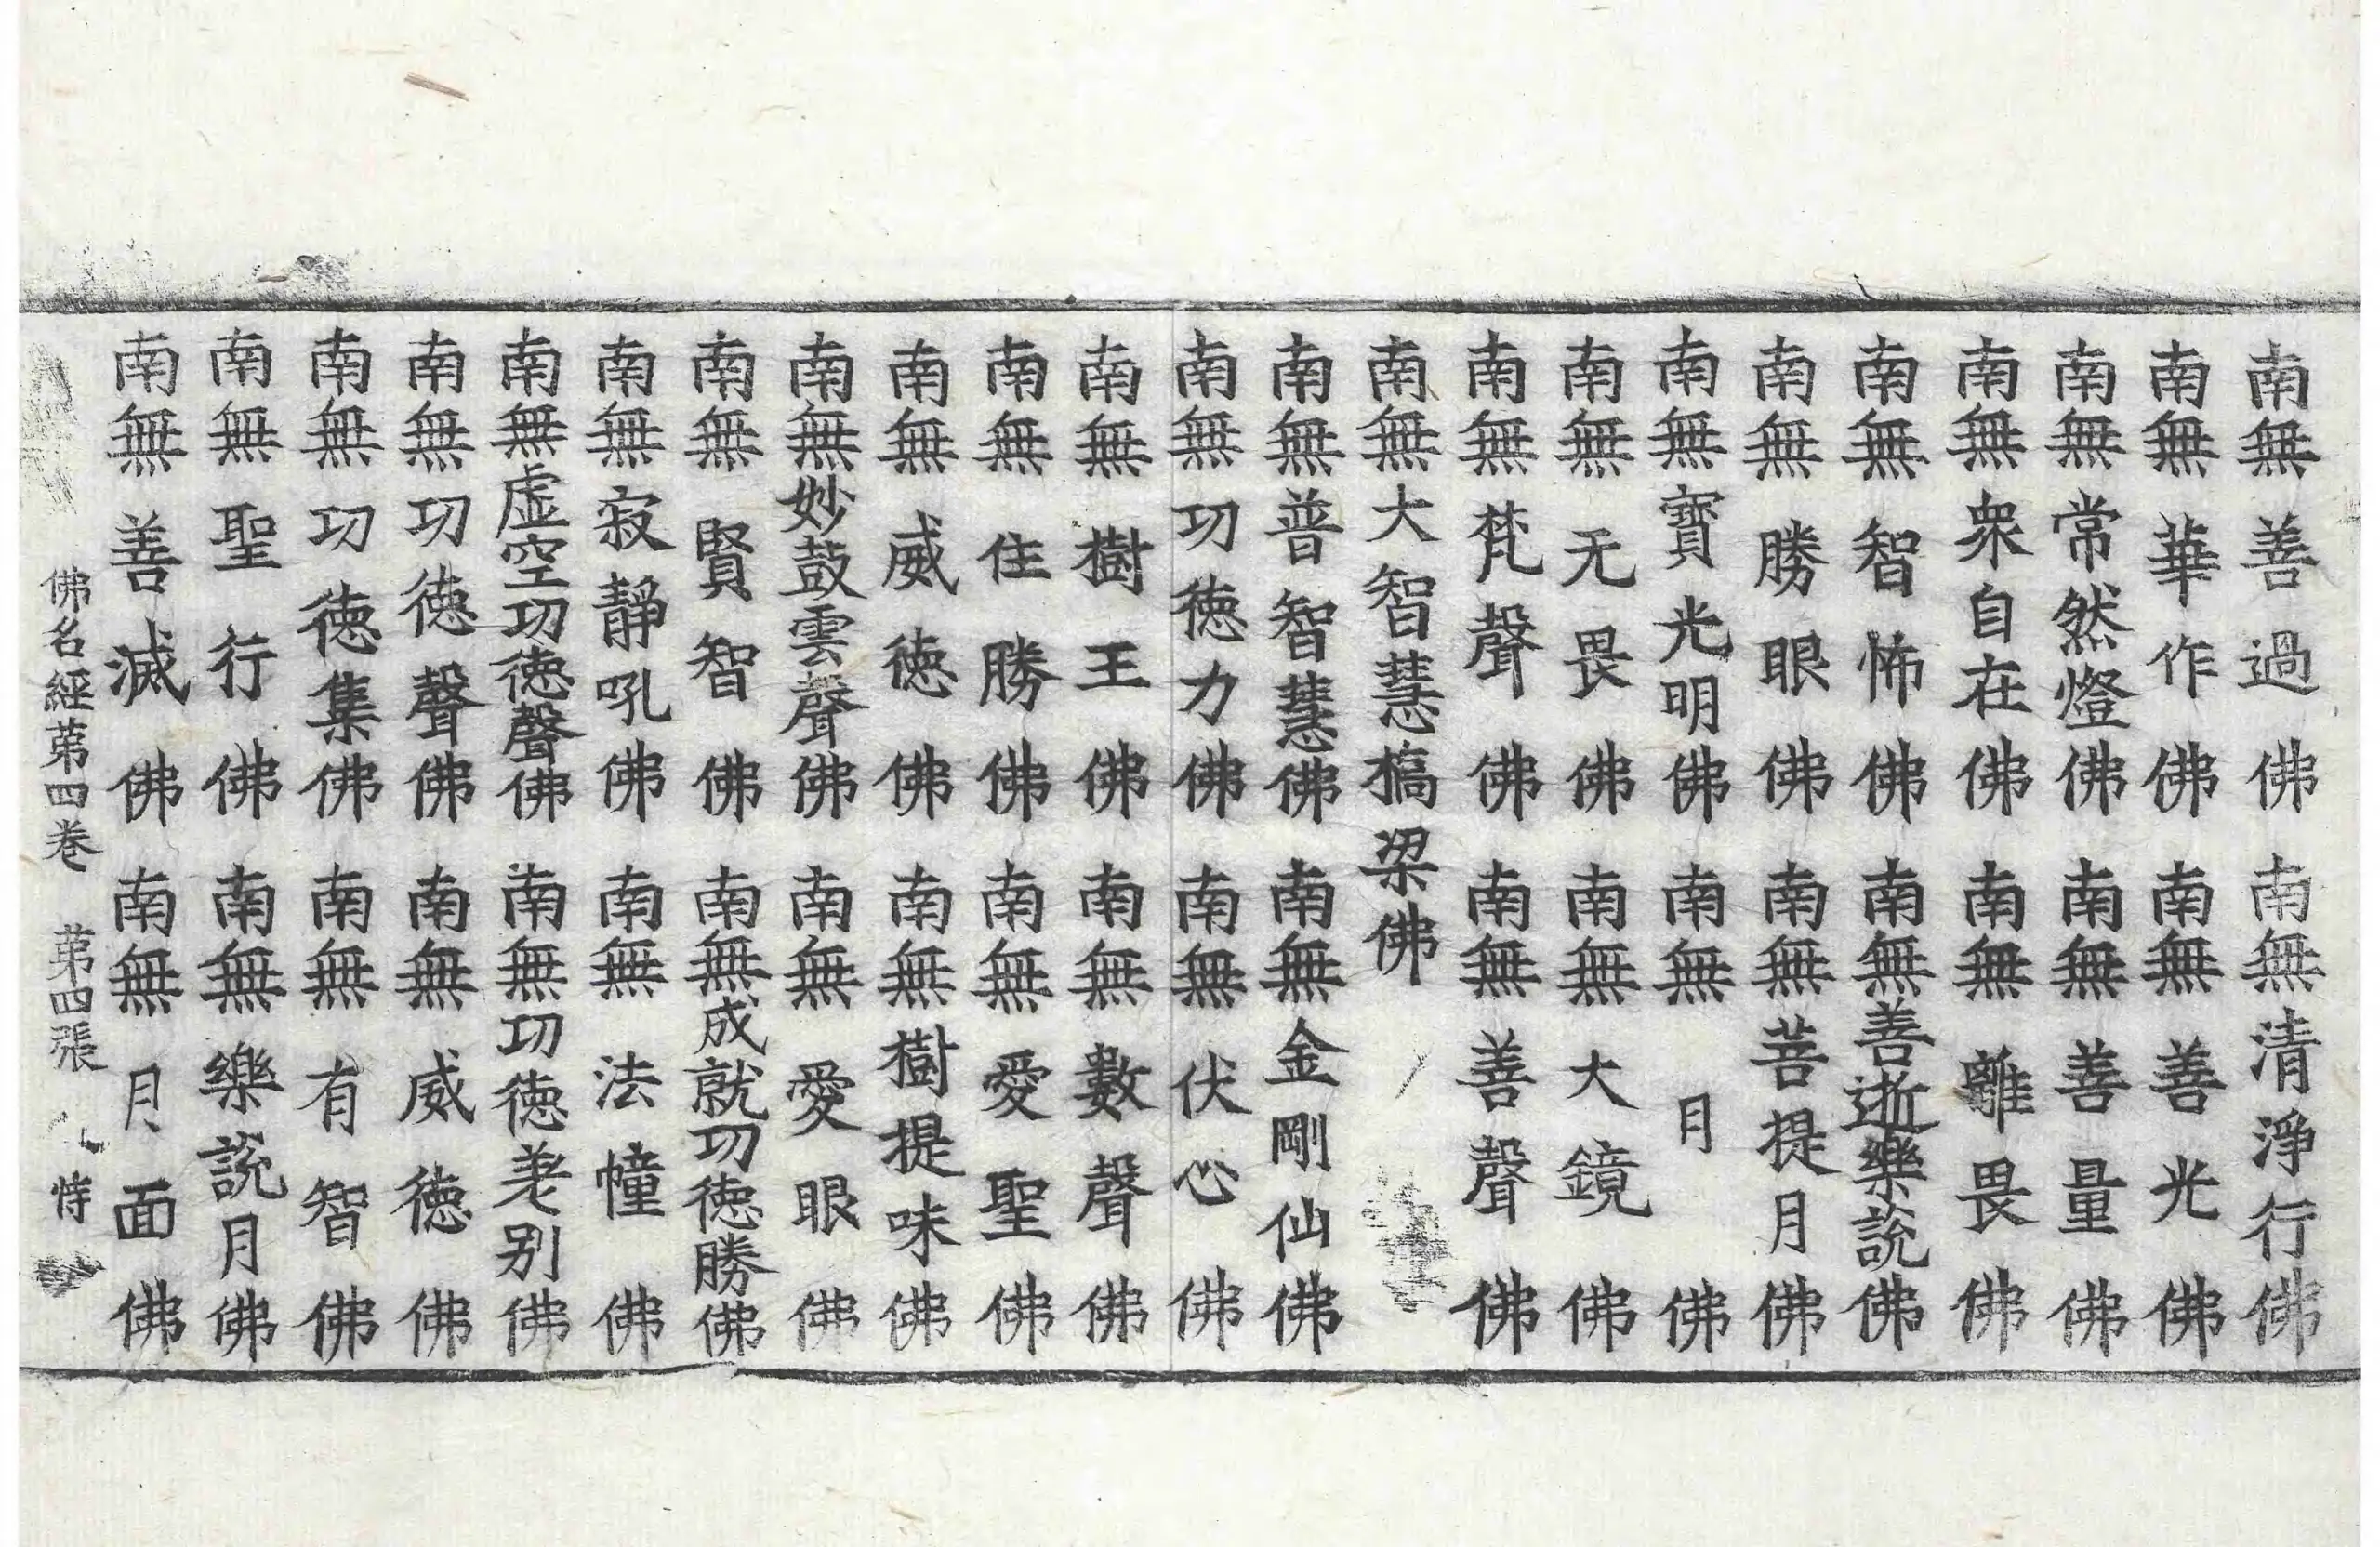 南無善過佛南無清淨行佛
南無華作佛南無善光佛
南無常然燈佛南無善量佛
南無衆自在佛南無離畏佛
南無智怖佛南無善逝樂說佛
南無勝眼佛南無菩提月佛
南無寶光明佛南無月佛
南無无畏佛南無大鏡佛
南無梵聲佛南無善聲佛
南無大智慧槁梁佛
南無普智慧佛南無金剛仙佛
南無功德力佛南無伏心佛
南無樹王佛南無數聲佛
南無住勝佛南無愛聖佛
南無威德佛南無樹提味佛
南無妙鼓雲聲佛南無愛眼佛
南無賢智佛南無成就功德勝佛
南無寂靜吼佛南無法幢佛
南無虛空功德聲佛南無功德差别佛
南無功德聲佛南無威德佛
南無功德集佛南無有智佛
南無聖行佛南無樂說月佛
南無善滅佛南無月面佛
佛名經苐四卷 苐四張 恃